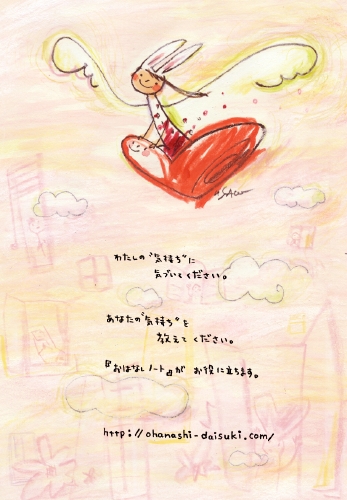 わたしの"気持ち"に
気づいてください。
あなたの"気持ち"を
教えてください。
『おはなしノート』が お役に立ちます。
http://ohanashi-daisuki.com/